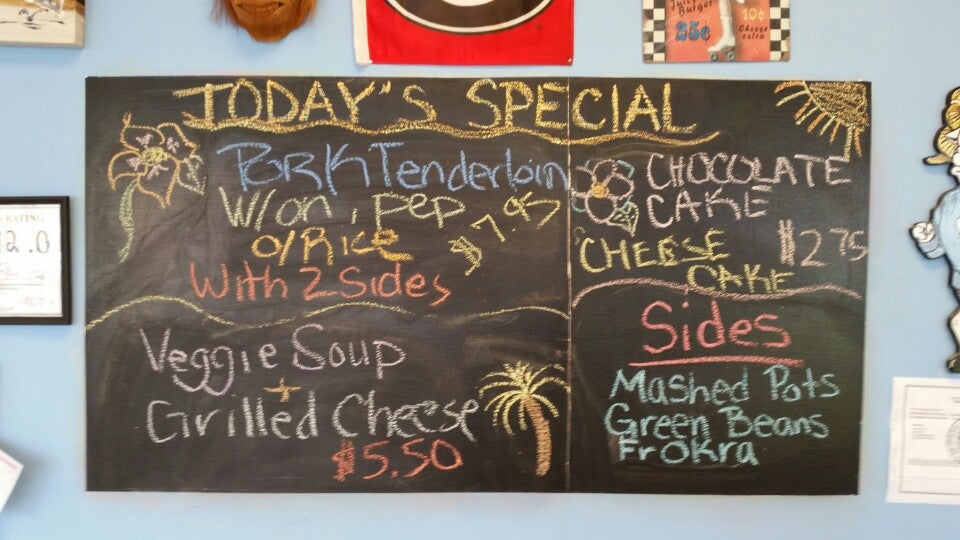 Juicy
Burger
25¢
10¢
Cheese
extra
TODAY'S SPECIAL
Pork Tenderloin
W/on, pep
o/Rice
$7.95
With 2 Sides
Veggie Soup
+
Grilled Cheese
$5.50
CHOCOLATE
CAKE
$2.75
CHEESE
CAKE
Sides
Mashed Pots
Green Beans
Fr Okra
RATING